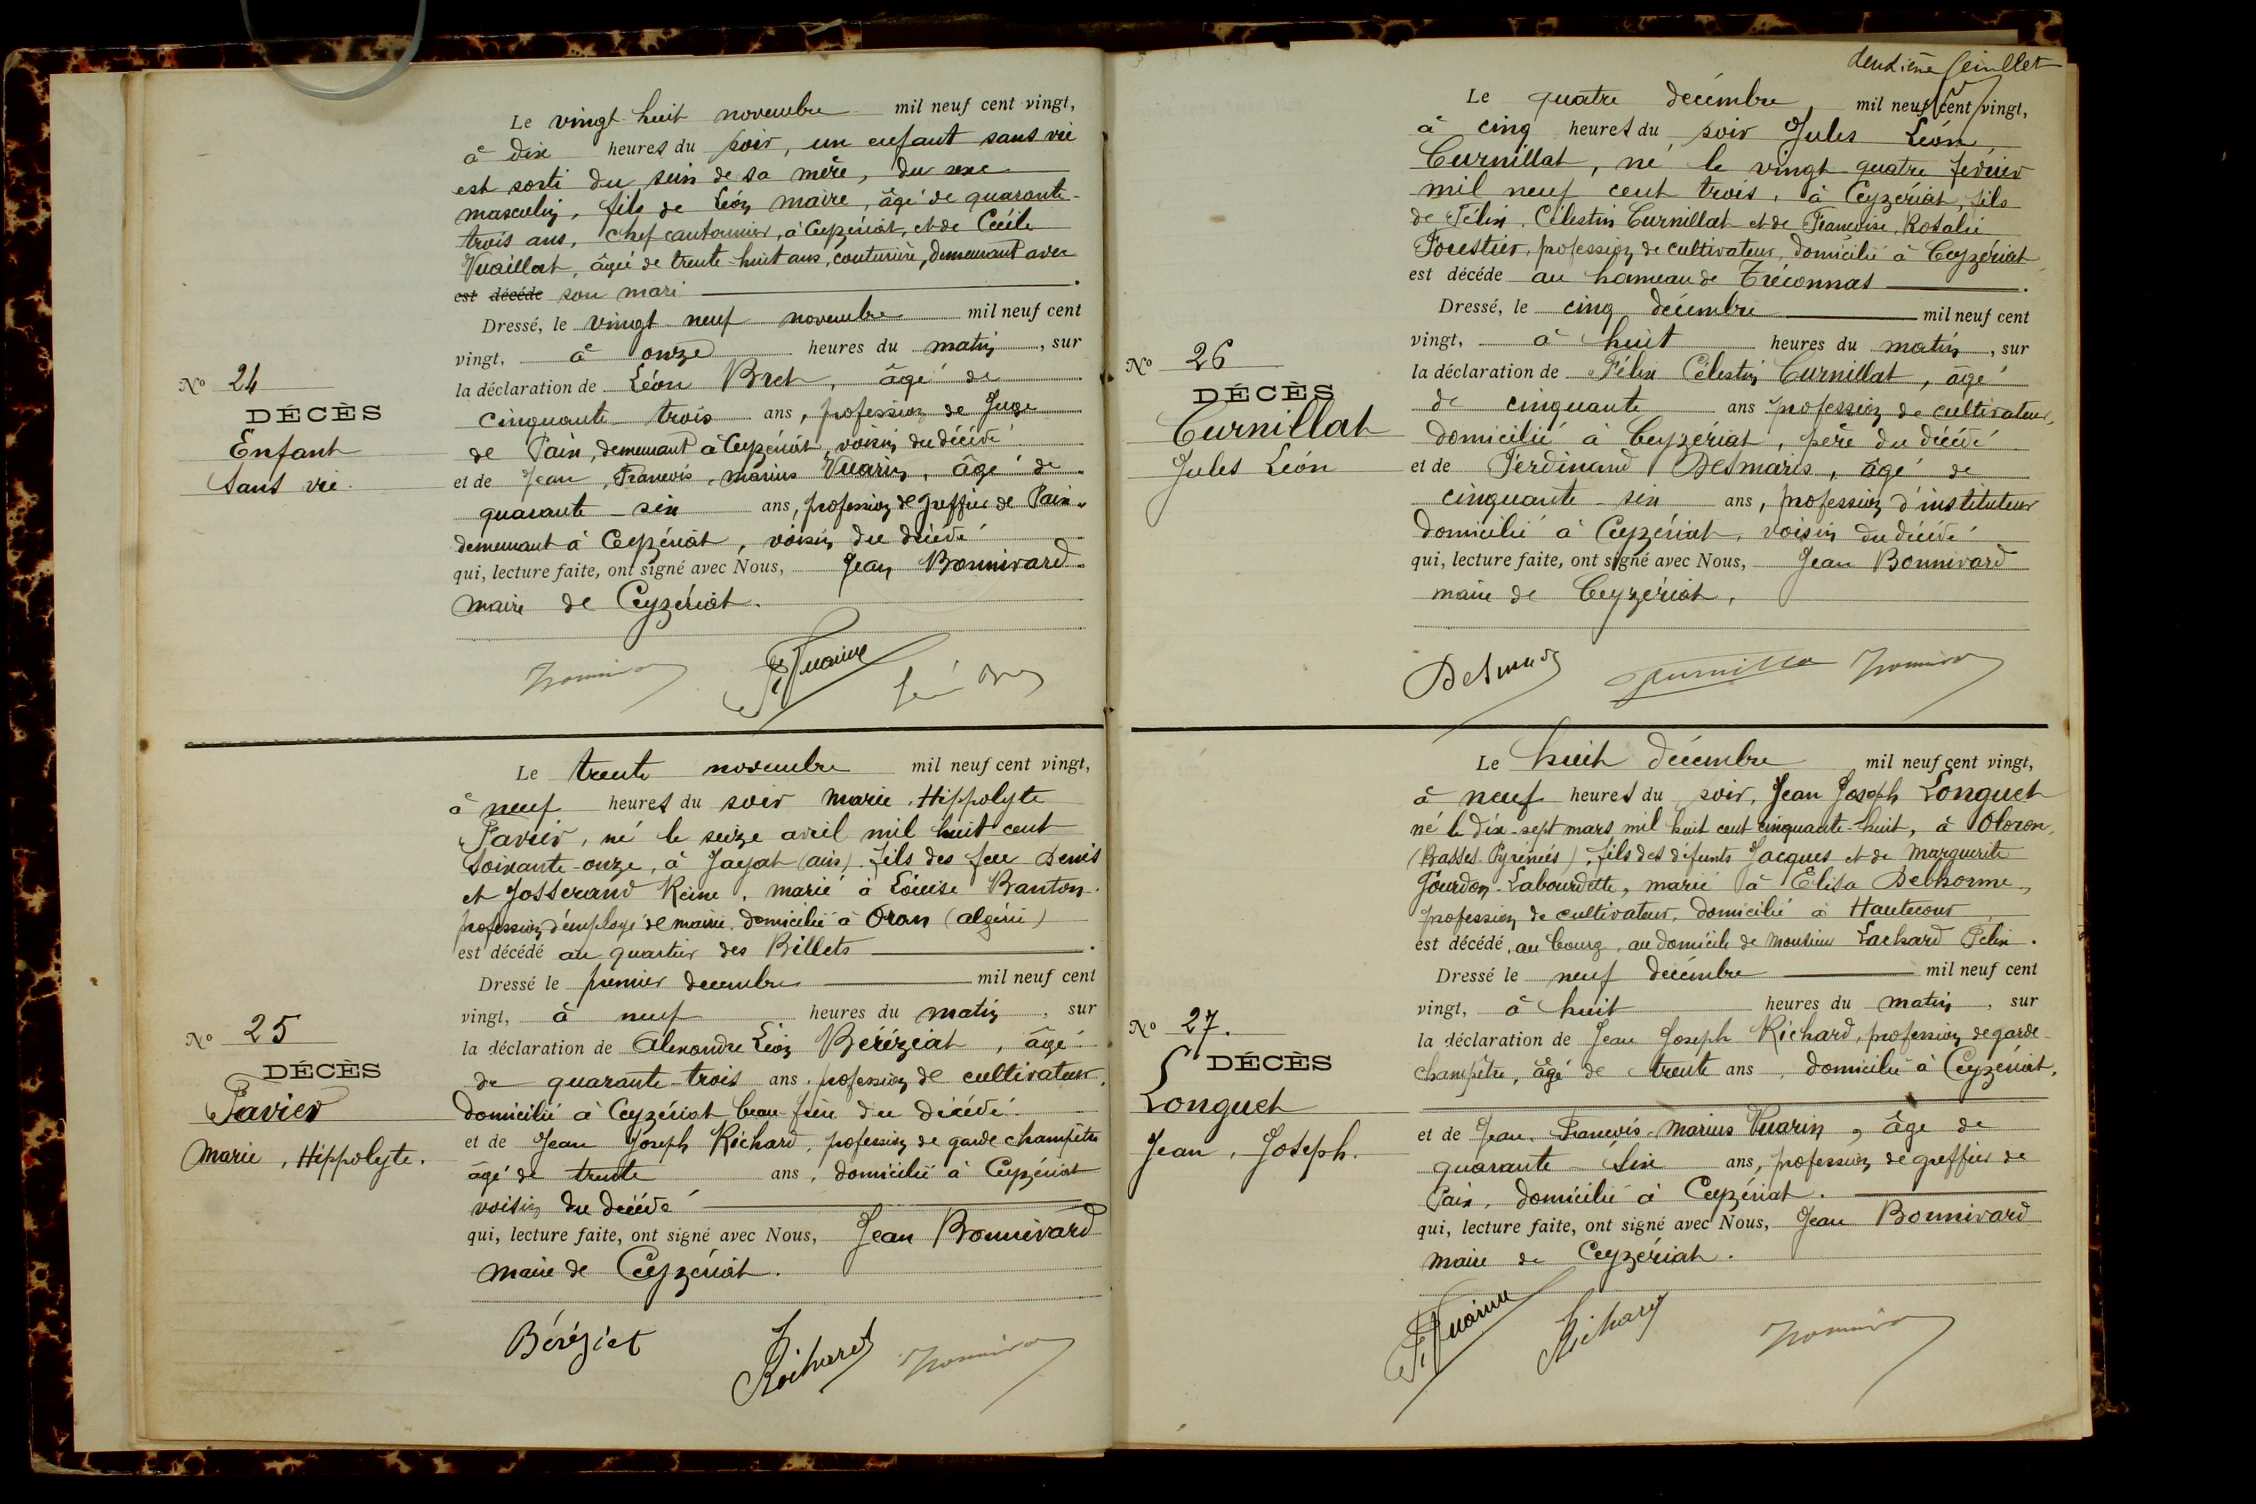 Le vingt-huit novembre mil neuf cent vingt,
à dix heures du soir, un enfant sans vie
est sorti du sein de sa mère, du sexe
masculin, fils de Léon Maire, âgé de quarante-
trois ans, chef cantonnier, à Ceyzériat, et de Cécile
Vuaillat, âgée de trente-huit ans, couturière, demeurant avec
est décédé son mari
Dressé, le vingt neuf novembre mil neuf cent
vingt, à onze heures du matin, sur
la déclaration de Léon Bret, âgé de
cinquante-trois ans, profession de Juge
de Paix, demeurant à Ceyzériat, voisin du décédé
et de Jean, Francois, Marius Vuarin, âgé de
quarante-six ans, profession de greffier de Paix
demeurant à Ceyzériat, voisin du décédé
qui, lecture faite, ont signé avec Nous, Jean Bonnivard
maire de Ceyzériat.
No 24
DÉCÈS
Enfant
Sans vie.
Le trente novembre mil neuf cent vingt,
à neuf heures du soir Marie, Hippolyte
Pavier, né le seize avril mil huit cent
soixante-onze, à Jayat (ain). fils des feu Denis
et Josserand Reine, marié à Louise Banton.
profession d'employé de mairie, domicilié à Oran (algérie)
est décédé au quartier des Billets
Dressé le premier decembre mil neuf cent
vingt, à neuf heures du matin, sur
la déclaration de Alexandre Léon Béréziat, âgé
de quarante-trois ans, profession de cultivateur,
domicilié à Ceyzériat beau-frère du décédé
et de Jean Joseph Richard, profession de garde champêtre
âgé de trente ans, domicilié à Ceyzériat
voisin du décédé
qui, lecture faite, ont signé avec Nous, Jean Bonnivard
maire de Ceyzériat.
No 25
DÉCÈS
Pavier
Marie, Hippolyte.
Béréziat
Richard
deuxième feuillet
Le quatre décembre, mil neuf cent vingt,
à cinq heures du soir Jules Léon
Curnillat, né le vingt-quatre février
mil neuf cent trois, à Ceyzériat, fils
de Félix, Célestin Curnillat et de Francoise, Rosalie
Forestier, profession de cultivateur, domicilié à Ceyzériat
est décédé au hameau de Tréconnas
Dressé, le cinq décembre mil neuf cent
vingt, à huit heures du matin, sur
la déclaration de Félix Célestin Curnillat, âgé
de cinquante ans profession de cultivateur,
domicilié à Ceyzériat, père du décédé
et de Ferdinand Desmaris, âgé de
cinquante-six ans, profession d'instituteur
domicilié à Ceyzériat, voisin du décédé
qui, lecture faite, ont signé avec Nous, Jean Bonnivard
maire de Ceyzériat,
No 26
DÉCÈS
Curnillat
Jules Léon
Le huit décembre mil neuf cent vingt,
à neuf heures du soir, Jean Joseph Longuet
né le dix-sept mars mil huit cent cinquante-huit, à Oloron,
(Basses-Pyrénées), fils des défunts Jacques et de Marguerite
Jourdon-Labourdette, marié à Elisa Delhorme,
profession de cultivateur, domicilié à Hautecour
est décédé, au bourg, au domicile de monsieur Lachard Félix.
Dressé le neuf décembre mil neuf cent
vingt, à huit heures du matin, sur
la déclaration de Jean Joseph Richard, profession de garde
champêtre, âgé de trente ans, domicilié à Ceyzériat,
et de Jean, Francois-Marius Vuarin, âgé de
quarante-six ans, profession de greffier de
Paix, domicilié à Ceyzériat.
qui, lecture faite, ont signé avec Nous, Jean Bonnivard
maire de Ceyzériat.
No 27.
DÉCÈS
Longuet
Jean, Joseph.
Richard